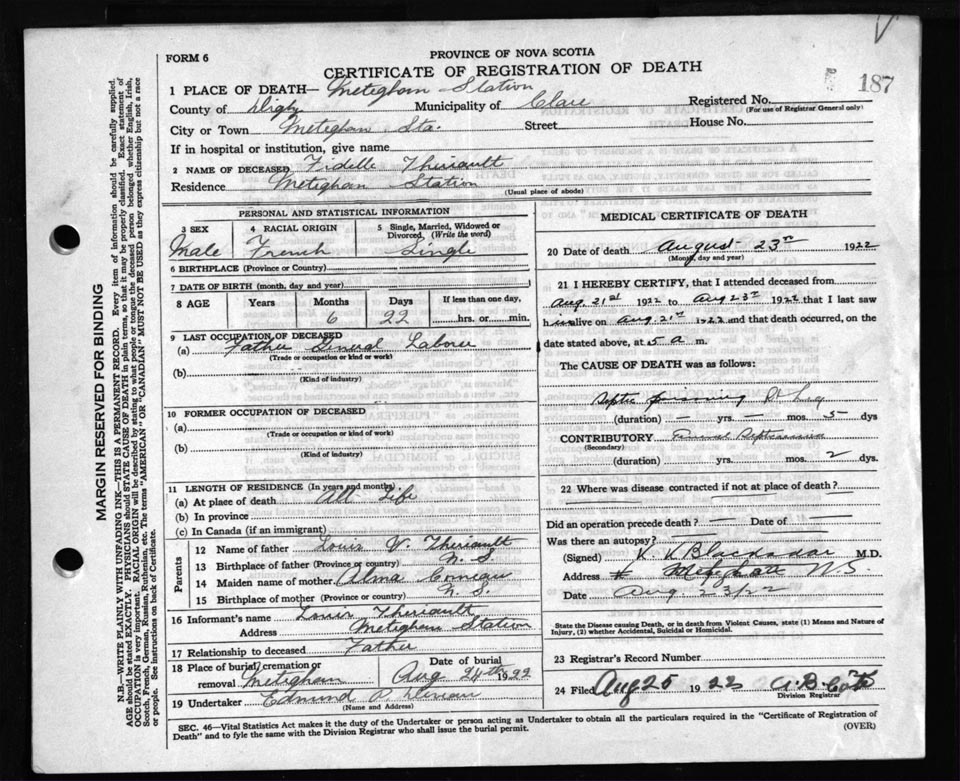 FORM 6
PROVINCE OF NOVA SCOTIA
CERTIFICATE OF REGISTRATION OF DEATH
187
1 PLACE OF DEATH— Meteghan Station
County of Digby Municipality of Clare Registered No.
(For use of Registrar General only)
City or Town Meteghan Sta. Street House No.
If in hospital or institution, give name
2 NAME OF DECEASED Fidelle Theriault
Residence Meteghan Station
(Usual place of abode)
PERSONAL AND STATISTICAL INFORMATION
3 SEX 4 RACIAL ORIGIN 5 Single, Married, Widowed or Divorced, (Write the word)
Male French Single
6 BIRTHPLACE (Province or Country)
7 DATE OF BIRTH (month, day and year)
8 AGE Years Months Days If less than one day,
6 22 hrs. or min.
9 LAST OCCUPATION OF DECEASED
(a) Father General Laborer
(Trade or occupation or kind of work)
(b)
(Kind of industry)
10 FORMER OCCUPATION OF DECEASED
(a)
(Trade or occupation or kind of work)
(b)
(Kind of industry)
11 LENGTH OF RESIDENCE (In years and months)
(a) At place of death All Life
(b) In province
(c) In Canada (if an immigrant)
Parents
12 Name of father Louis V. Theriault
13 Birthplace of father (Province or country) N. S.
14 Maiden name of mother Alma Comeau
15 Birthplace of mother (Province or country) N. S.
16 Informant's name Louis Theriault
Address Meteghan Station
17 Relationship to deceased Father
18 Place of burial, cremation or removal Meteghan Date of burial Aug 24th 1922
19 Undertaker Edmund
(Name and Address)
MEDICAL CERTIFICATE OF DEATH
20 Date of death August 23rd 1922
(Month, day and year)
21 I HEREBY CERTIFY, that I attended deceased from
Aug. 21st 1922 to Aug 23rd 1922 that I last saw
him alive on Aug. 21st 1922 and that death occurred, on the
date stated above, at 5 a. m.
The CAUSE OF DEATH was as follows:
Septic poisoning Rt Leg
(duration) — yrs. — mos. 5 dys
CONTRIBUTORY Septicaemia
(Secondary)
(duration) yrs. mos. 2 dys.
22 Where was disease contracted if not at place of death?
Did an operation precede death? — Date of —
Was there an autopsy?
(Signed) Blackadar M.D.
Address N.S.
Date Aug 23/22
State the Disease causing Death, or in death from Violent Causes, state (1) Means and Nature of
Injury, (2) whether Accidental, Suicidal or Homicidal.
23 Registrar's Record Number
24 Filed Aug 25 1922
Division Registrar
SEC. 46—Vital Statistics Act makes it the duty of the Undertaker or person acting as Undertaker to obtain all the particulars required in the "Certificate of Registration of
Death" and to fyle the same with the Division Registrar who shall issue the burial permit. (OVER)
MARGIN RESERVED FOR BINDING
N.B.—WRITE PLAINLY WITH UNFADING INK—THIS IS A PERMANENT RECORD. Every item of information should be carefully supplied.
AGE should be stated EXACTLY. PHYSICIANS should STATE CAUSE OF DEATH in plain terms, so that it may be properly classified. Exact statement of
OCCUPATION is very important. RACIAL ORIGIN will be described by stating to what people or tongue the deceased person belonged whether English, Irish,
Scotch, French, German, Russian, Ruthenian, etc. The terms "AMERICAN" OR "CANADIAN" MUST NOT BE USED as they express citizenship but not a race
or people. See instructions on back of Certificate.